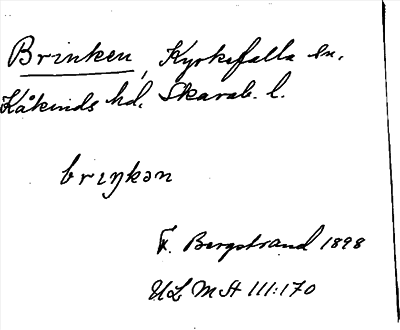 Brinken, Kyrkefalla sn,
Kåkinds hd, Skarab. l.
briŋkən
F. Bergstrand 1898
ULMA 111:170